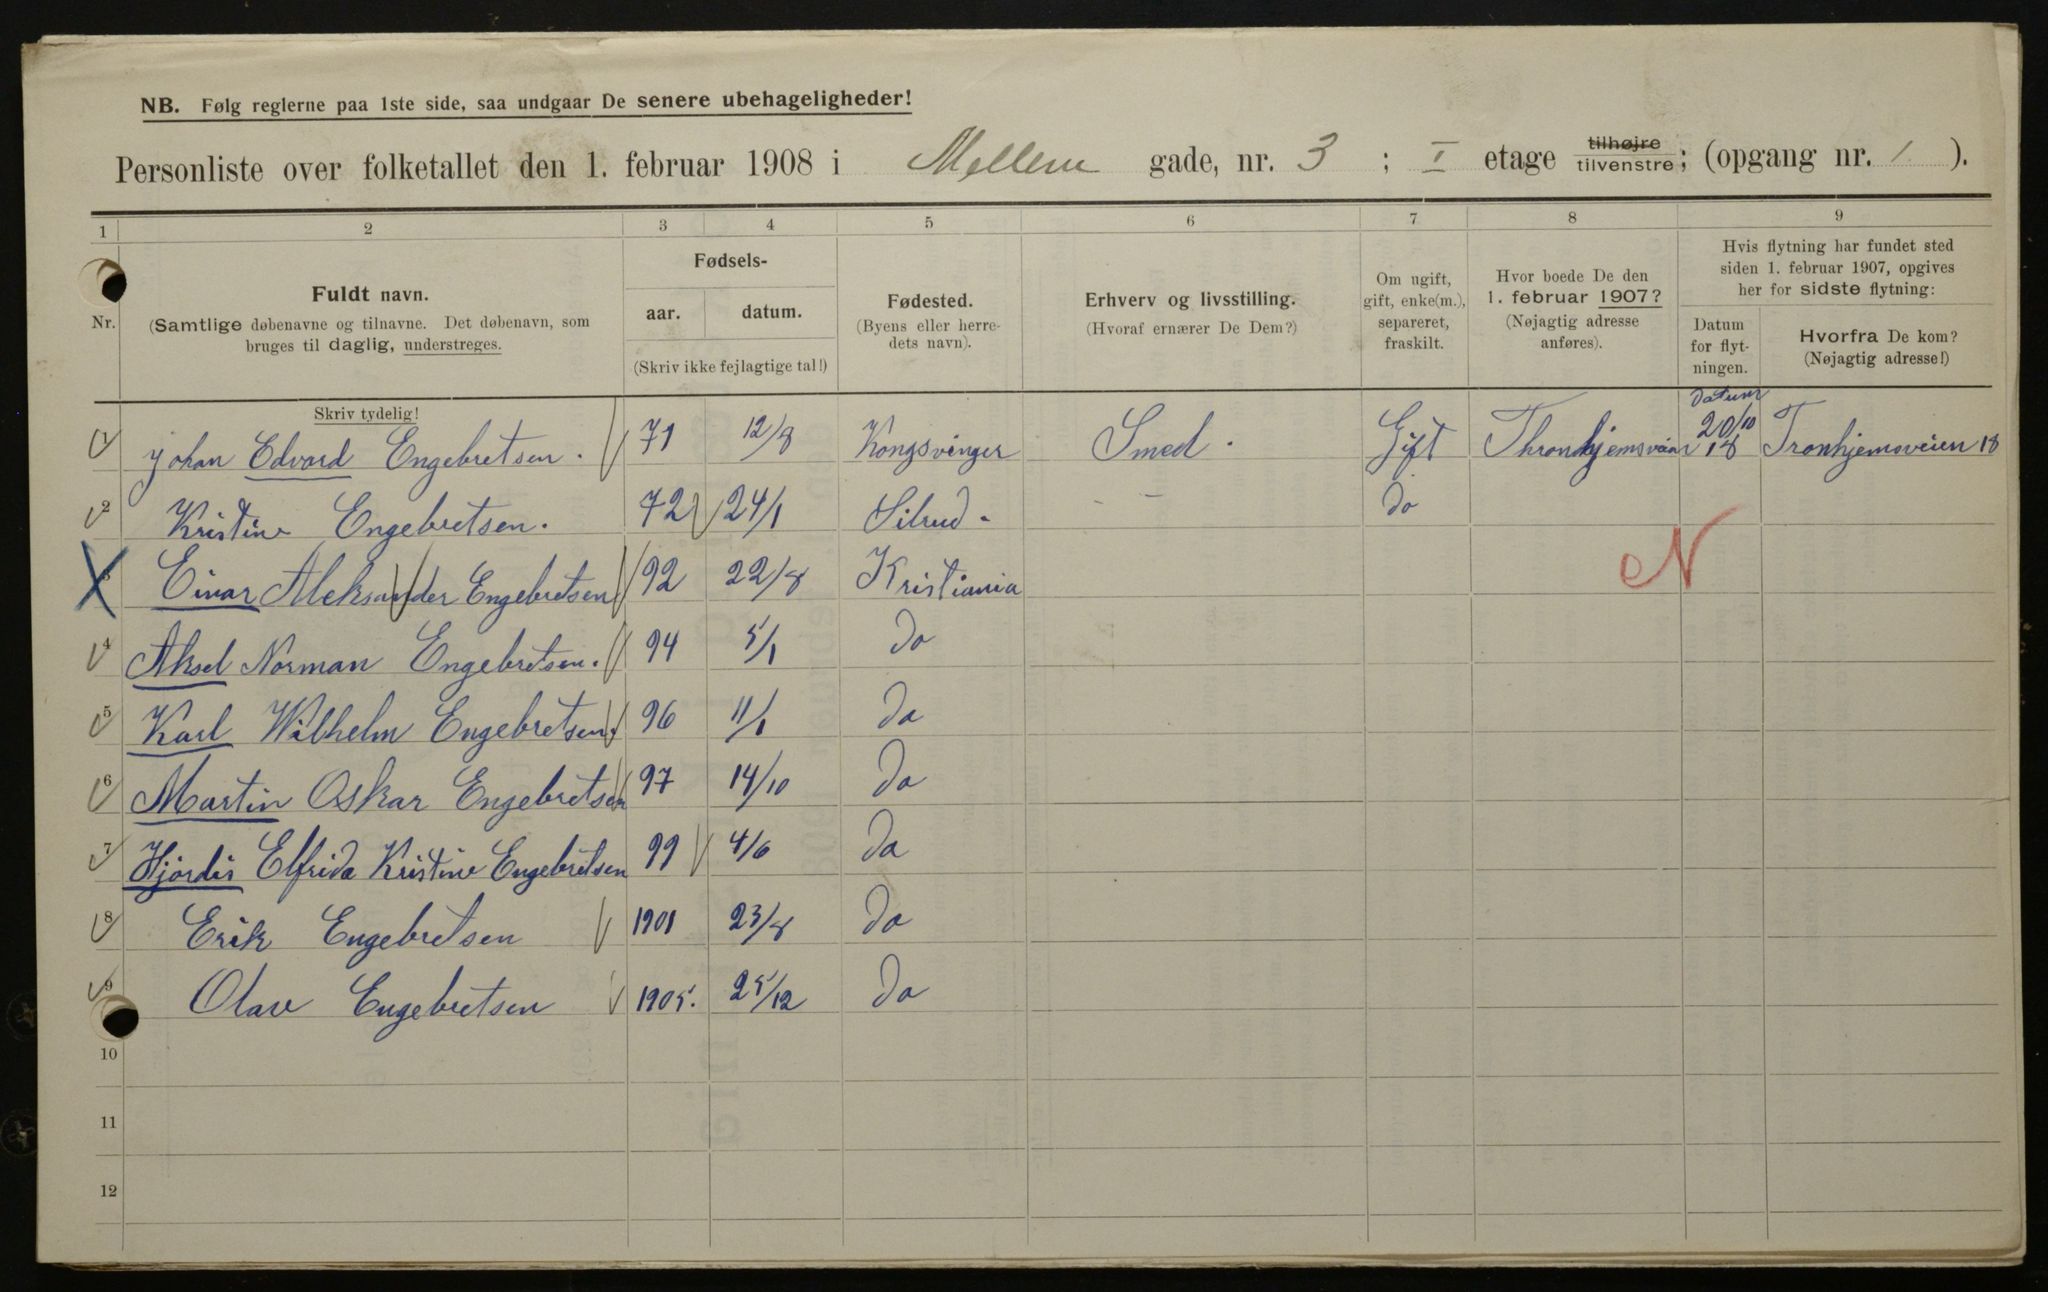 NB. Følg reglerne paa 1ste side, saa undgaar De senere ubehageligheder!
Personliste over folketallet den 1. februar 1908 i Mellem gade, nr. 3 ; I etage tilhøjre tilvenstre ; (opgang nr. 1. ).
1 2 3 4 5 6 7 8 9
Nr.
Fuldt navn.
(Samtlige døbenavne og tilnavne. Det døbenavn, som
bruges til daglig, understreges.
Fødsels-
aar. datum.
(Skriv ikke fejlagtige tal!)
Fødested.
(Byens eller herre-
dets navn).
Erhverv og livsstilling.
(Hvoraf ernærer De Dem?)
Om ugift,
gift, enke(m.),
separeret,
fraskilt.
Hvor boede De den
1. februar 1907?
(Nøjagtig adresse
anføres).
Hvis flytning har fundet sted
siden 1. februar 1907, opgives
her for sidste flytning:
Datum
for flyt-
ningen.
Hvorfra De kom?
(Nøjagtig adresse!)
Skriv tydelig!
Datum
1 Johan Edvard Engebretsen. 71 12/8 Kongsvinger Smed. Gift Thronhjemsveien 18 20/10 Tronhjemsveien 18
2 Kristine Engebretsen. 72 24/1 — — Do
3 Einar Aleksander Engebretsen 92 22/8 Kristiania N
4 Aksel Norman Engebretsen. 94 5/1 Do
5 Karl Wilhelm Engebretsen. 96 11/1 Do
6 Martin Oskar Engebretsen 97 14/10 Do
7 Hjørdis Elfrida Kristine Engebretsen 99 4/6 Do
8 Erik Engebretsen 1901 23/8 Do
9 Olav Engebretsen 1905. 25/12 Do
10
11
12